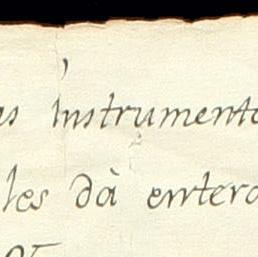 as instrumento
les dà entera